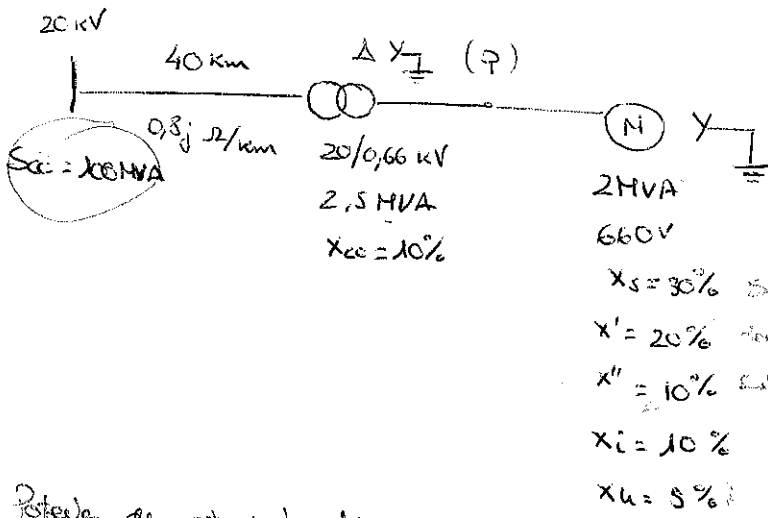 20 KV
40 Km
Δ Y (P)
0,8j Ω/km
Scc = 100 MVA
20/0,66 kV
2,5 MVA
Xcc = 10%
M
Y
2MVA
660V
Xs = 30%
X' = 20%
X" = 10%
Xi = 10 %
Xh = 5 %